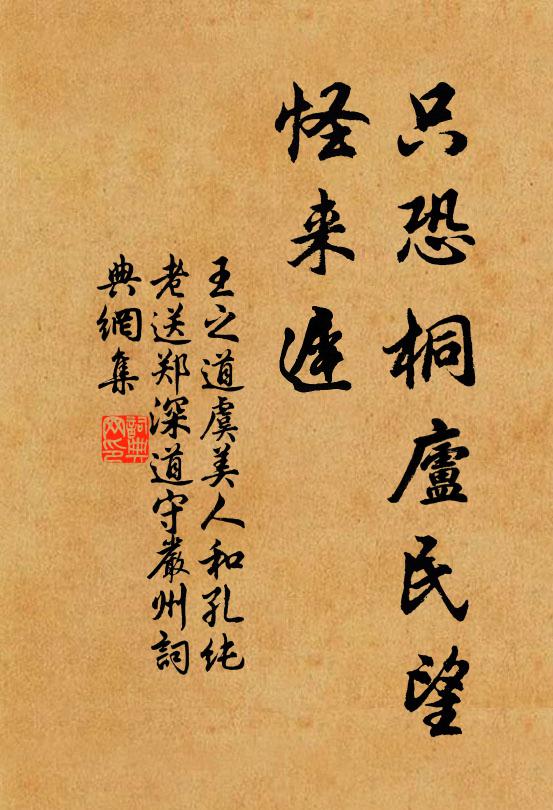 只恐桐廬民望
怪来遲
王之道虞美人和孔纯
老送郑深道守嚴州詞
典網集
詞典
网印